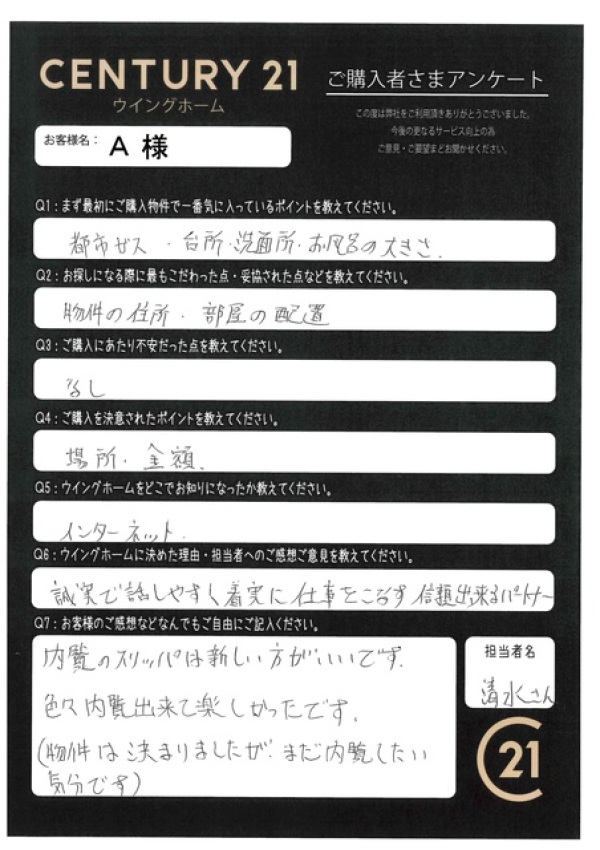 CENTURY 21
ウイングホーム
ご購入者さまアンケート
この度は弊社をご利用頂きありがとうございました。
今後の更なるサービス向上の為
ご意見・ご要望までお聞かせください。
お客様名： A 様
Q1：まず最初にご購入物件で一番気に入っているポイントを教えてください。
都市ガス ・台所・洗面所・お風呂の大きさ.
Q2：お探しになる際に最もこだわった点・妥協された点などを教えてください。
物件の住所・ 部屋の配置
Q3：ご購入にあたり不安だった点を教えてください。
なし
Q4：ご購入を決意されたポイントを教えてください。
場所・金額.
Q5：ウイングホームをどこでお知りになったか教えてください。
インターネット.
Q6：ウイングホームに決めた理由・担当者へのご感想ご意見を教えてください。
誠実で話しやすく着実に仕事をこなす信頼出来るパートナー
Q7：お客様のご感想などなんでもご自由にご記入ください。
内覧のスリッパは新しい方がいいです.
色々内覧出来て楽しかったです.
(物件は決まりましたが.まだ内覧したい
気分です)
担当者名
清水さん
C21